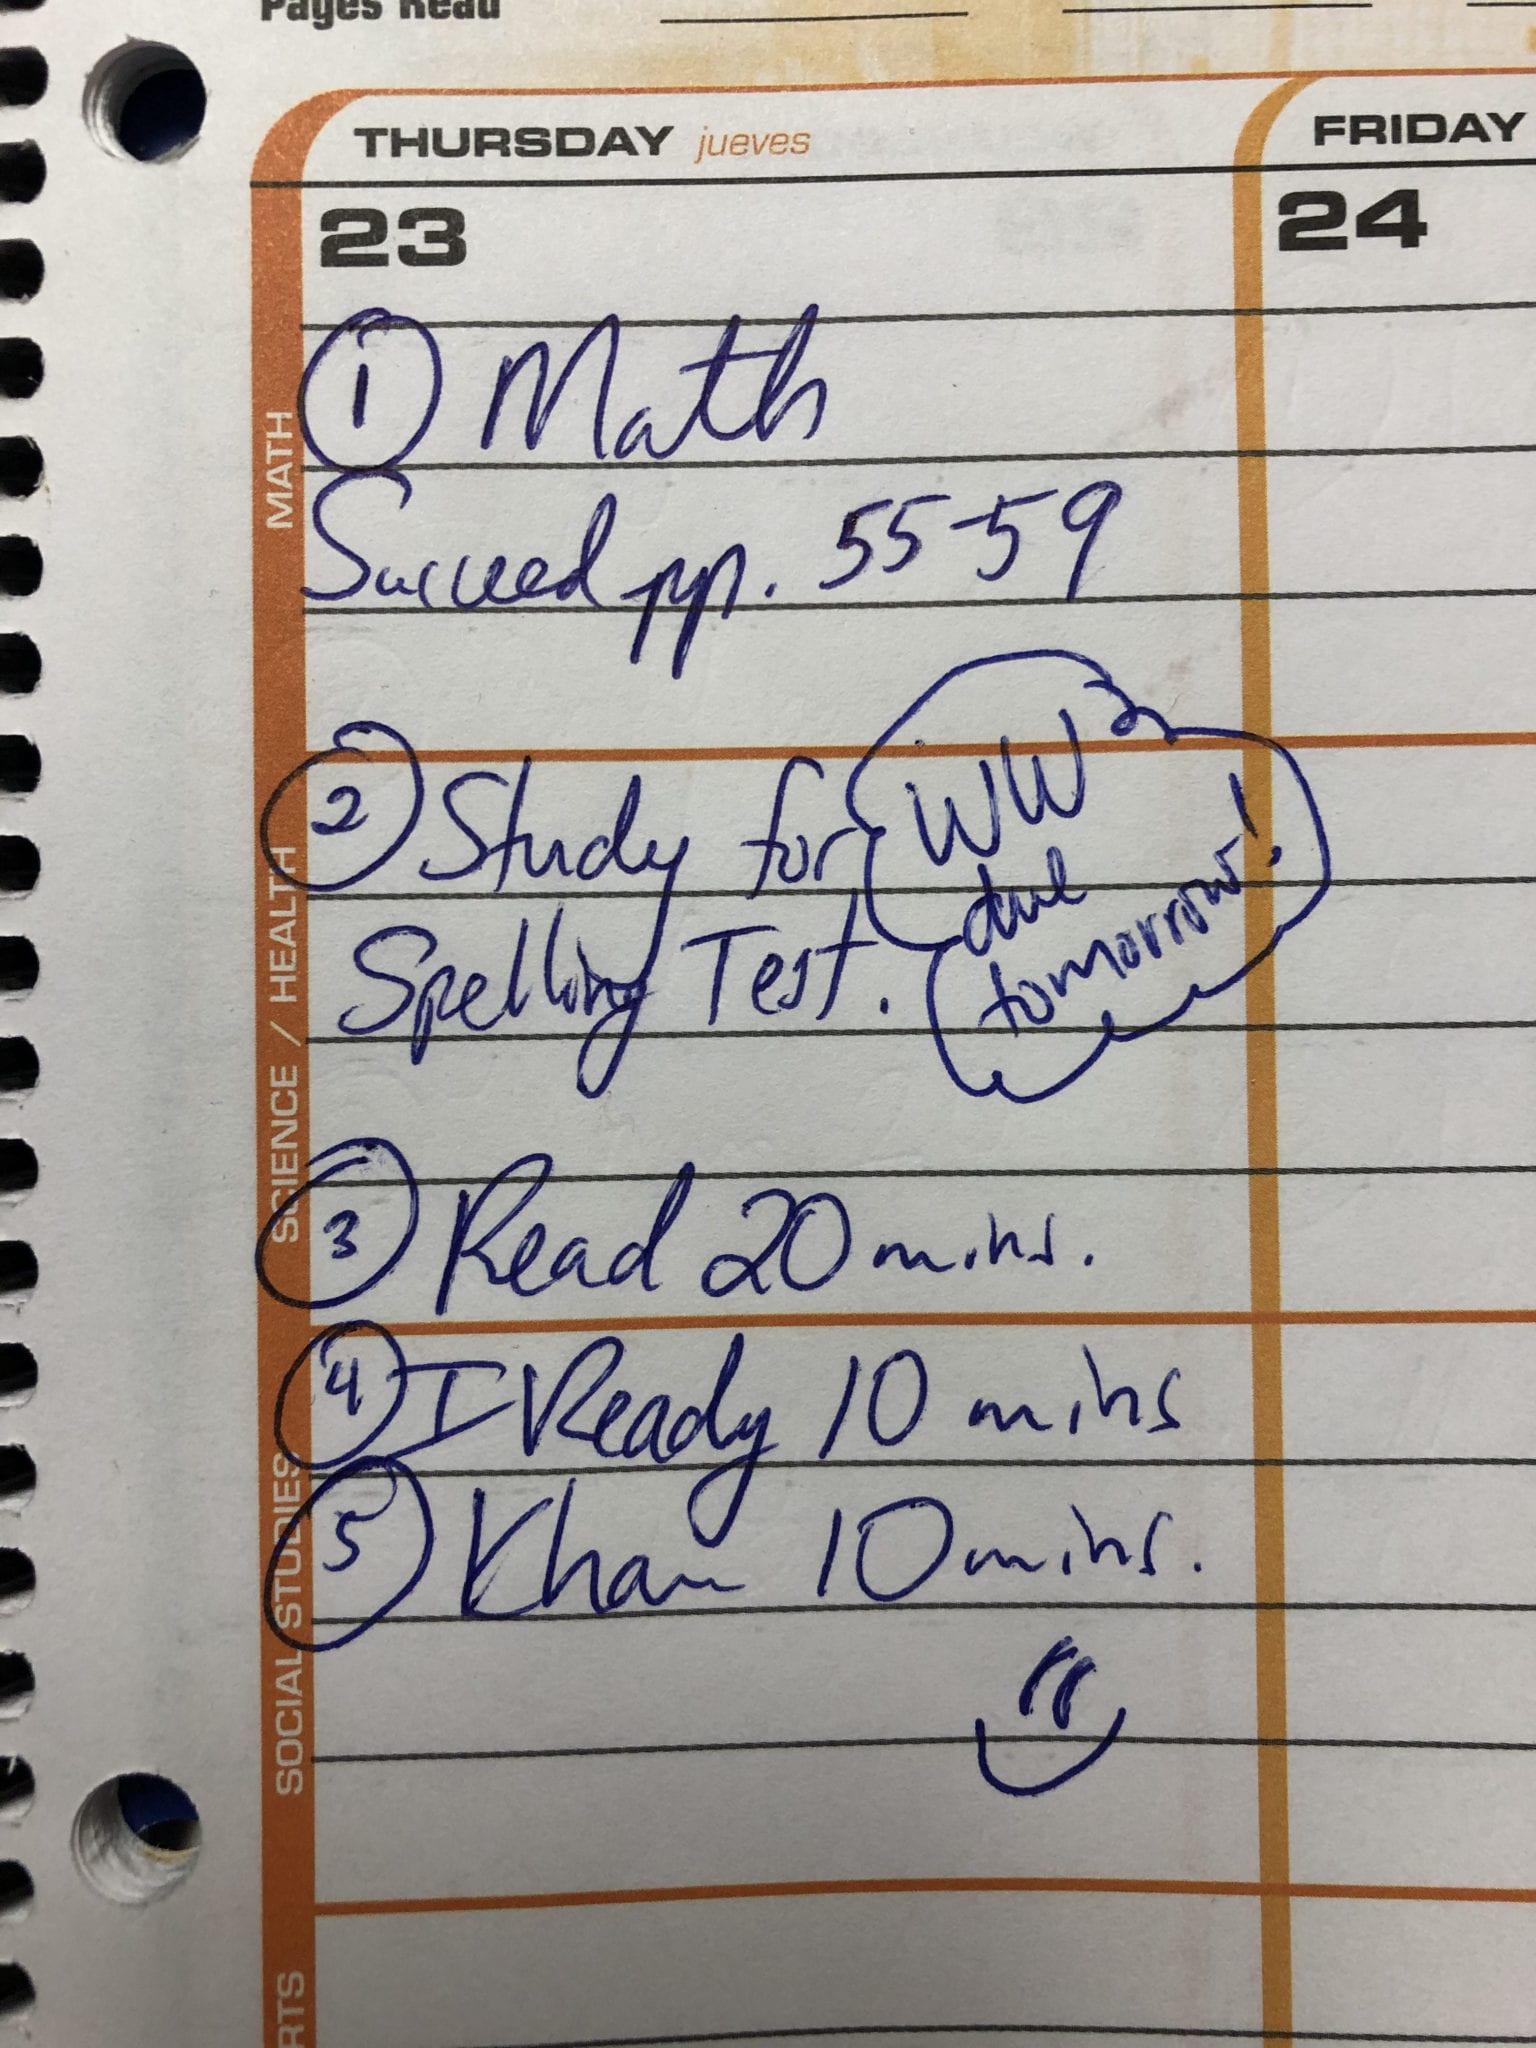 Pages Read
THURSDAY jueves
FRIDAY
23
24
MATH
① Math
Succeed pp. 55-59
SCIENCE / HEALTH
② Study for
Spelling Test.
WW
due
tomorrow!
③ Read 20 mins.
SOCIAL STUDIES
④ I Ready 10 mins
⑤ Khan 10 mins.
RTS